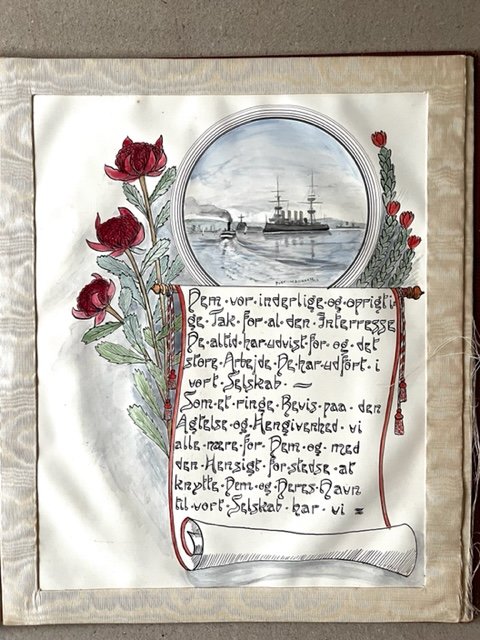 Dem·vor·inderlige·og·oprigti-
ge·Tak·for·al·den·Interresse
De·altid·har·udvist·for·og·det
store·Arbejde·De·har·udført·i
vort·Selskab·~
Som·et·ringe·Bevis·paa·den
Agtelse·og·Hengivenhed·vi
alle·nære·for·Dem·og·med
den·Hensigt·for·stedse·at
knytte·Dem·og·Deres·Navn
til·vort·Selskab·har·vi =